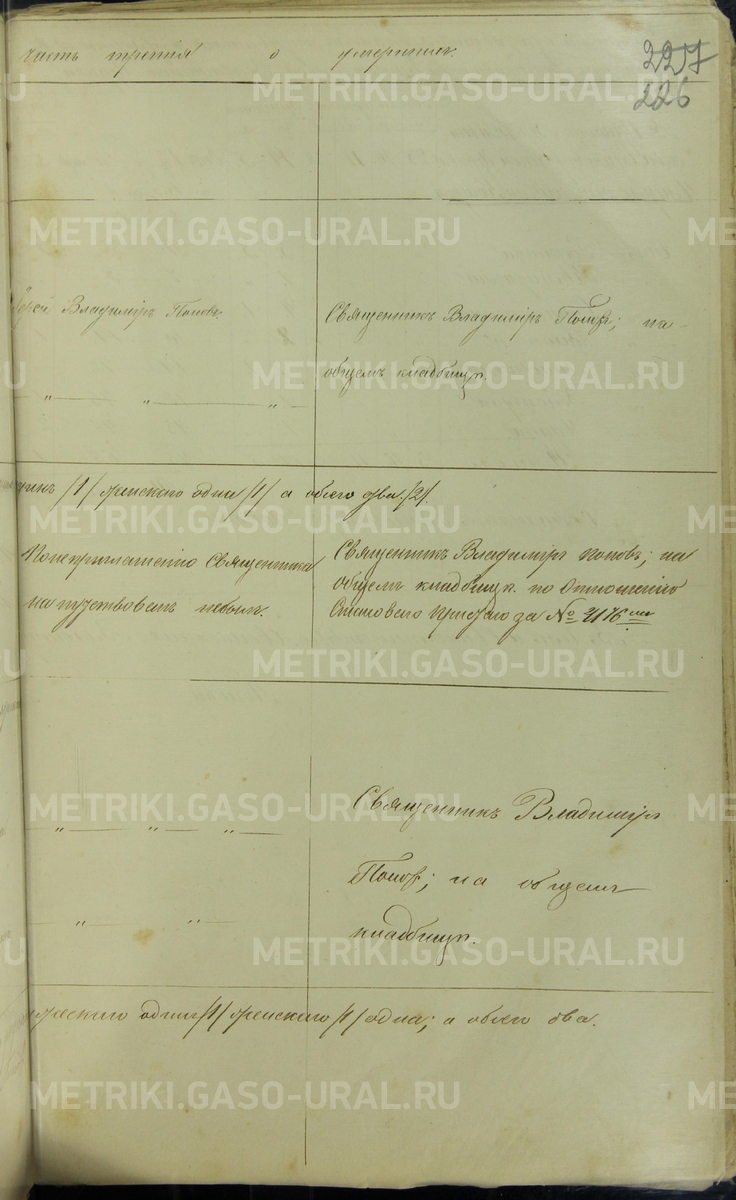 часть третія о умершихъ.
227
226
METRIKI.GASO-URAL.RU
Іерей Владиміръ Поповъ.
Священникъ Владиміръ Поповъ; на
общемъ кладбищѣ.
— „ — „ — „ —
/1/ женскаго одна /1/ а обоего два /2/.
По неприглашенію Священника
напутствованъ небылъ.
Священникъ Владиміръ Поповъ; на
общемъ кладбищѣ по отношенію
Становаго Пристава за №
— „ — „ — „ —
Священникъ Владиміръ
Поповъ; на общемъ
кладбищѣ.
— „ — „ —
мужескаго одинъ /1/ женскаго /1/ одна; а обоего два.